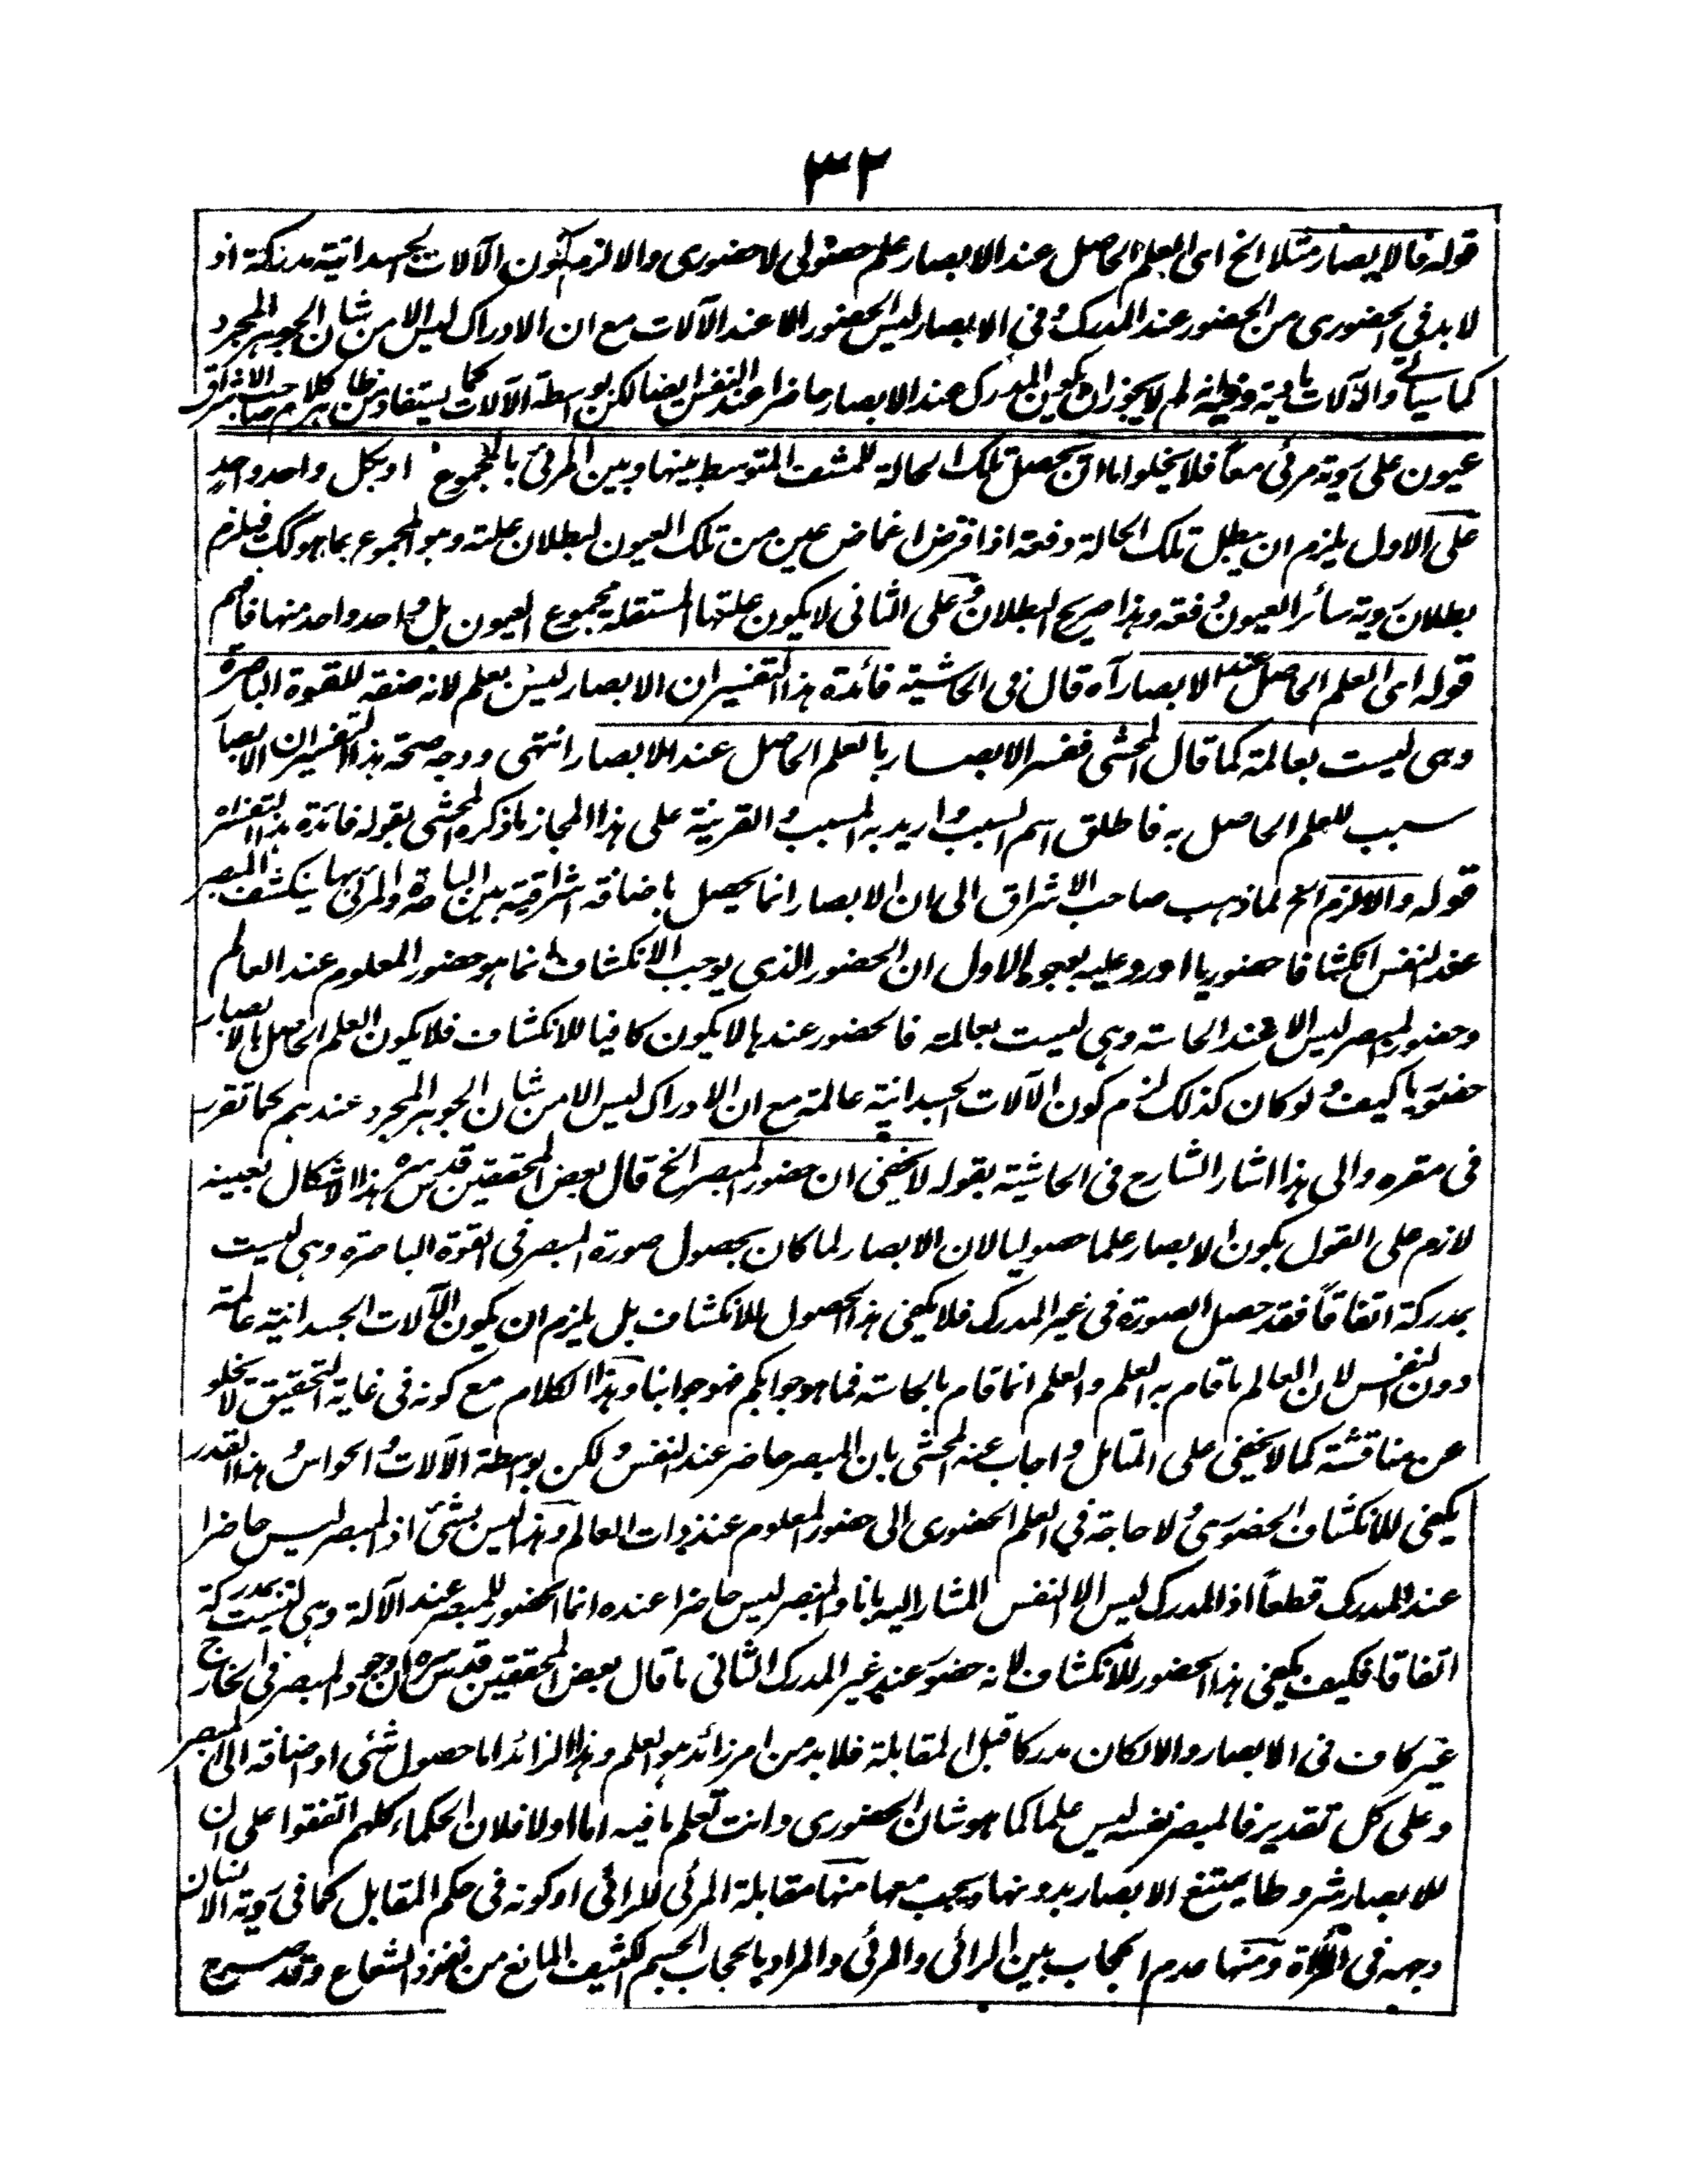 ٣٢
قوله فالابصار مثلا الخ اى العلم الحاصل عند الابصار علم حصولى لا حضورى والا لزم كون الآلات الجسدانية مدركة اذ
لا بد فى الحضورى من الحضور عند المدرك وفى الابصار ليس الحضور الا عند الآلات مع ان الادراك ليس الا من شان الجوهر المجرد
كما سياتى والآلات مادية وفيه انه لم لا يجوز ان يكون المدرك عند الابصار حاضرا عند النفس ايضا لكن بواسطة الآلات كما يستفاد من ظاهر كلام صاحب الاشراق
عيون على روية مرئى معا فلا يخلو اما ان يحصل تلك الحالة للمشف المتوسط بينها وبين المرئى بالمجموع او بكل واحد واحد
على الاول يلزم ان يبطل تلك الحالة دفعة اذا فرض اغماض عين من تلك العيون لبطلان علته وهو المجموع بما هو كك فيلزم
بطلان روية سائر العيون دفعة وهذا صريح البطلان وعلى الثانى لا يكون علتها المستقلة مجموع العيون بل واحد واحد منها فافهم
قوله اى العلم الحاصل عند الابصار آه قال فى الحاشية فائدة هذا التفسير ان الابصار ليس بعلم لانه صفة للقوة الباصرة
وهى ليست بعالمة كما قال المحشى ففسر الابصار بالعلم الحاصل عند الابصار انتهى ووجه صحة هذا التفسير ان الابصار
سبب للعلم الحاصل به فاطلق اسم السبب واريد به المسبب والقرينة على هذا المجاز ما ذكره المحشى بقوله فائدة هذا التفسير
قوله والا لزم الخ لما ذهب صاحب الاشراق الى ان الابصار انما يحصل باضافة اشراقية بين الباصرة والمرئى بها ينكشف المبصر
عند النفس انكشافا حضوريا اورد عليه بوجوه الاول ان الحضور الذى يوجب الانكشاف انما هو حضور المعلوم عند العالم
وحضور المبصر ليس الا عند الحاسة وهى ليست بعالمة فالحضور عندها لا يكون كافيا للانكشاف فلا يكون العلم الحاصل بالابصار
حضوريا كيف ولو كان كذلك لزم كون الآلات الجسدانية عالمة مع ان الادراك ليس الا من شان الجوهر المجرد عندهم كما تقرر
فى مقره والى هذا اشار الشارح فى الحاشية بقوله لا يخفى ان حضور المبصر الخ قال بعض المحققين قدس سره هذا الاشكال بعينه
لازم على القول بكون الابصار علما حصوليا لان الابصار لما كان بحصول صورة المبصر فى القوة الباصرة وهى ليست
بمدركة اتفاقاً فقد حصل الصورة فى غير المدرك فلا يكفى هذا الحصول للانكشاف بل يلزم ان يكون الآلات الجسدانية عالمة
دون النفس لان العالم ما قام به العلم والعلم انما قام بالحاسة فما هو جوابكم فهو جوابنا وهذا الكلام مع كونه فى غاية التحقيق لا يخلو
عن مناقشة كما لا يخفى على المتامل واجاب عنه المحشى بان المبصر حاضر عند النفس ولكن بواسطة الآلات والحواس وهذا القدر
يكفى للانكشاف الحضورى ولا حاجة فى العلم الحضورى الى حضور المعلوم عند ذات العالم وهذا ليس بشئ اذ المبصر ليس حاضرا
عند المدرك قطعاً اذ المدرك ليس الا النفس المشار اليه بانا والمبصر ليس حاضرا عنده انما الحضور للمبصر عند الآلة وهى ليست بمدركة
اتفاقا فكيف يكفى هذا الحضور للانكشاف لانه حضور عند غير المدرك الثانى ما قال بعض المحققين قدس سره ان وجود المبصر فى الخارج
غير كاف فى الابصار والا لكان مدركا قبل المقابلة فلا بد من امر زائد هو العلم وهذا الزائد اما حصول شئى او اضافة الى المبصر
وعلى كل تقدير فالمبصر نفسه ليس علما كما هو شان الحضورى وانت تعلم ما فيه اما اولا فلان الحكماء كلهم اتفقوا على ان
للابصار شروطا يمتنع الابصار بدونها ويجب معها منها مقابلة المرئى للرائى او كونه فى حكم المقابل كما فى روية الانسان
وجهه فى المرآة ومنها عدم الحجاب بين الرائى والمرئى والمراد بالحجاب الجسم الكثيف المانع من نفوذ الشعاع وقد صرح